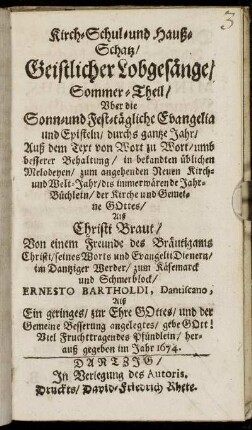 3
Kirch-Schul-und Hauß-
Schatz/
Geistlicher Lobgesänge/
Sommer-Theil/
Uber die
Sonn-und Fest-tägliche Evangelia
und Episteln/ durchs gantze Jahr/
Auß dem Text von Wort zu Wort/ umb
besserer Behaltung/ in bekandten üblichen
Melodeyen/ zum angehenden Neuen Kirch-
und Welt-Jahr/ dis immerwärende Jahr-
Büchlein/ der Kirche und Gemei-
ne GOttes/
Alß
Christi Braut/
Von einem Freunde des Bräutigams
Christi/ seines Worts und Evangelii Dienern/
im Dantziger Werder/ zum Käsemarck
und Schmerblock/
ERNESTO BARTHOLDI, Dantiscano,
Alß
Ein geringes/ zur Ehre GOttes/ und der
Gemeine Besserung angelegtes/ gebe GOtt!
Viel Fruchttragendes Pfündlein/ her-
auß gegeben im Jahr 1674.
DANTZIG/
In Verlegung des Autoris,
Druckts/ David-Friedrich Rhete.